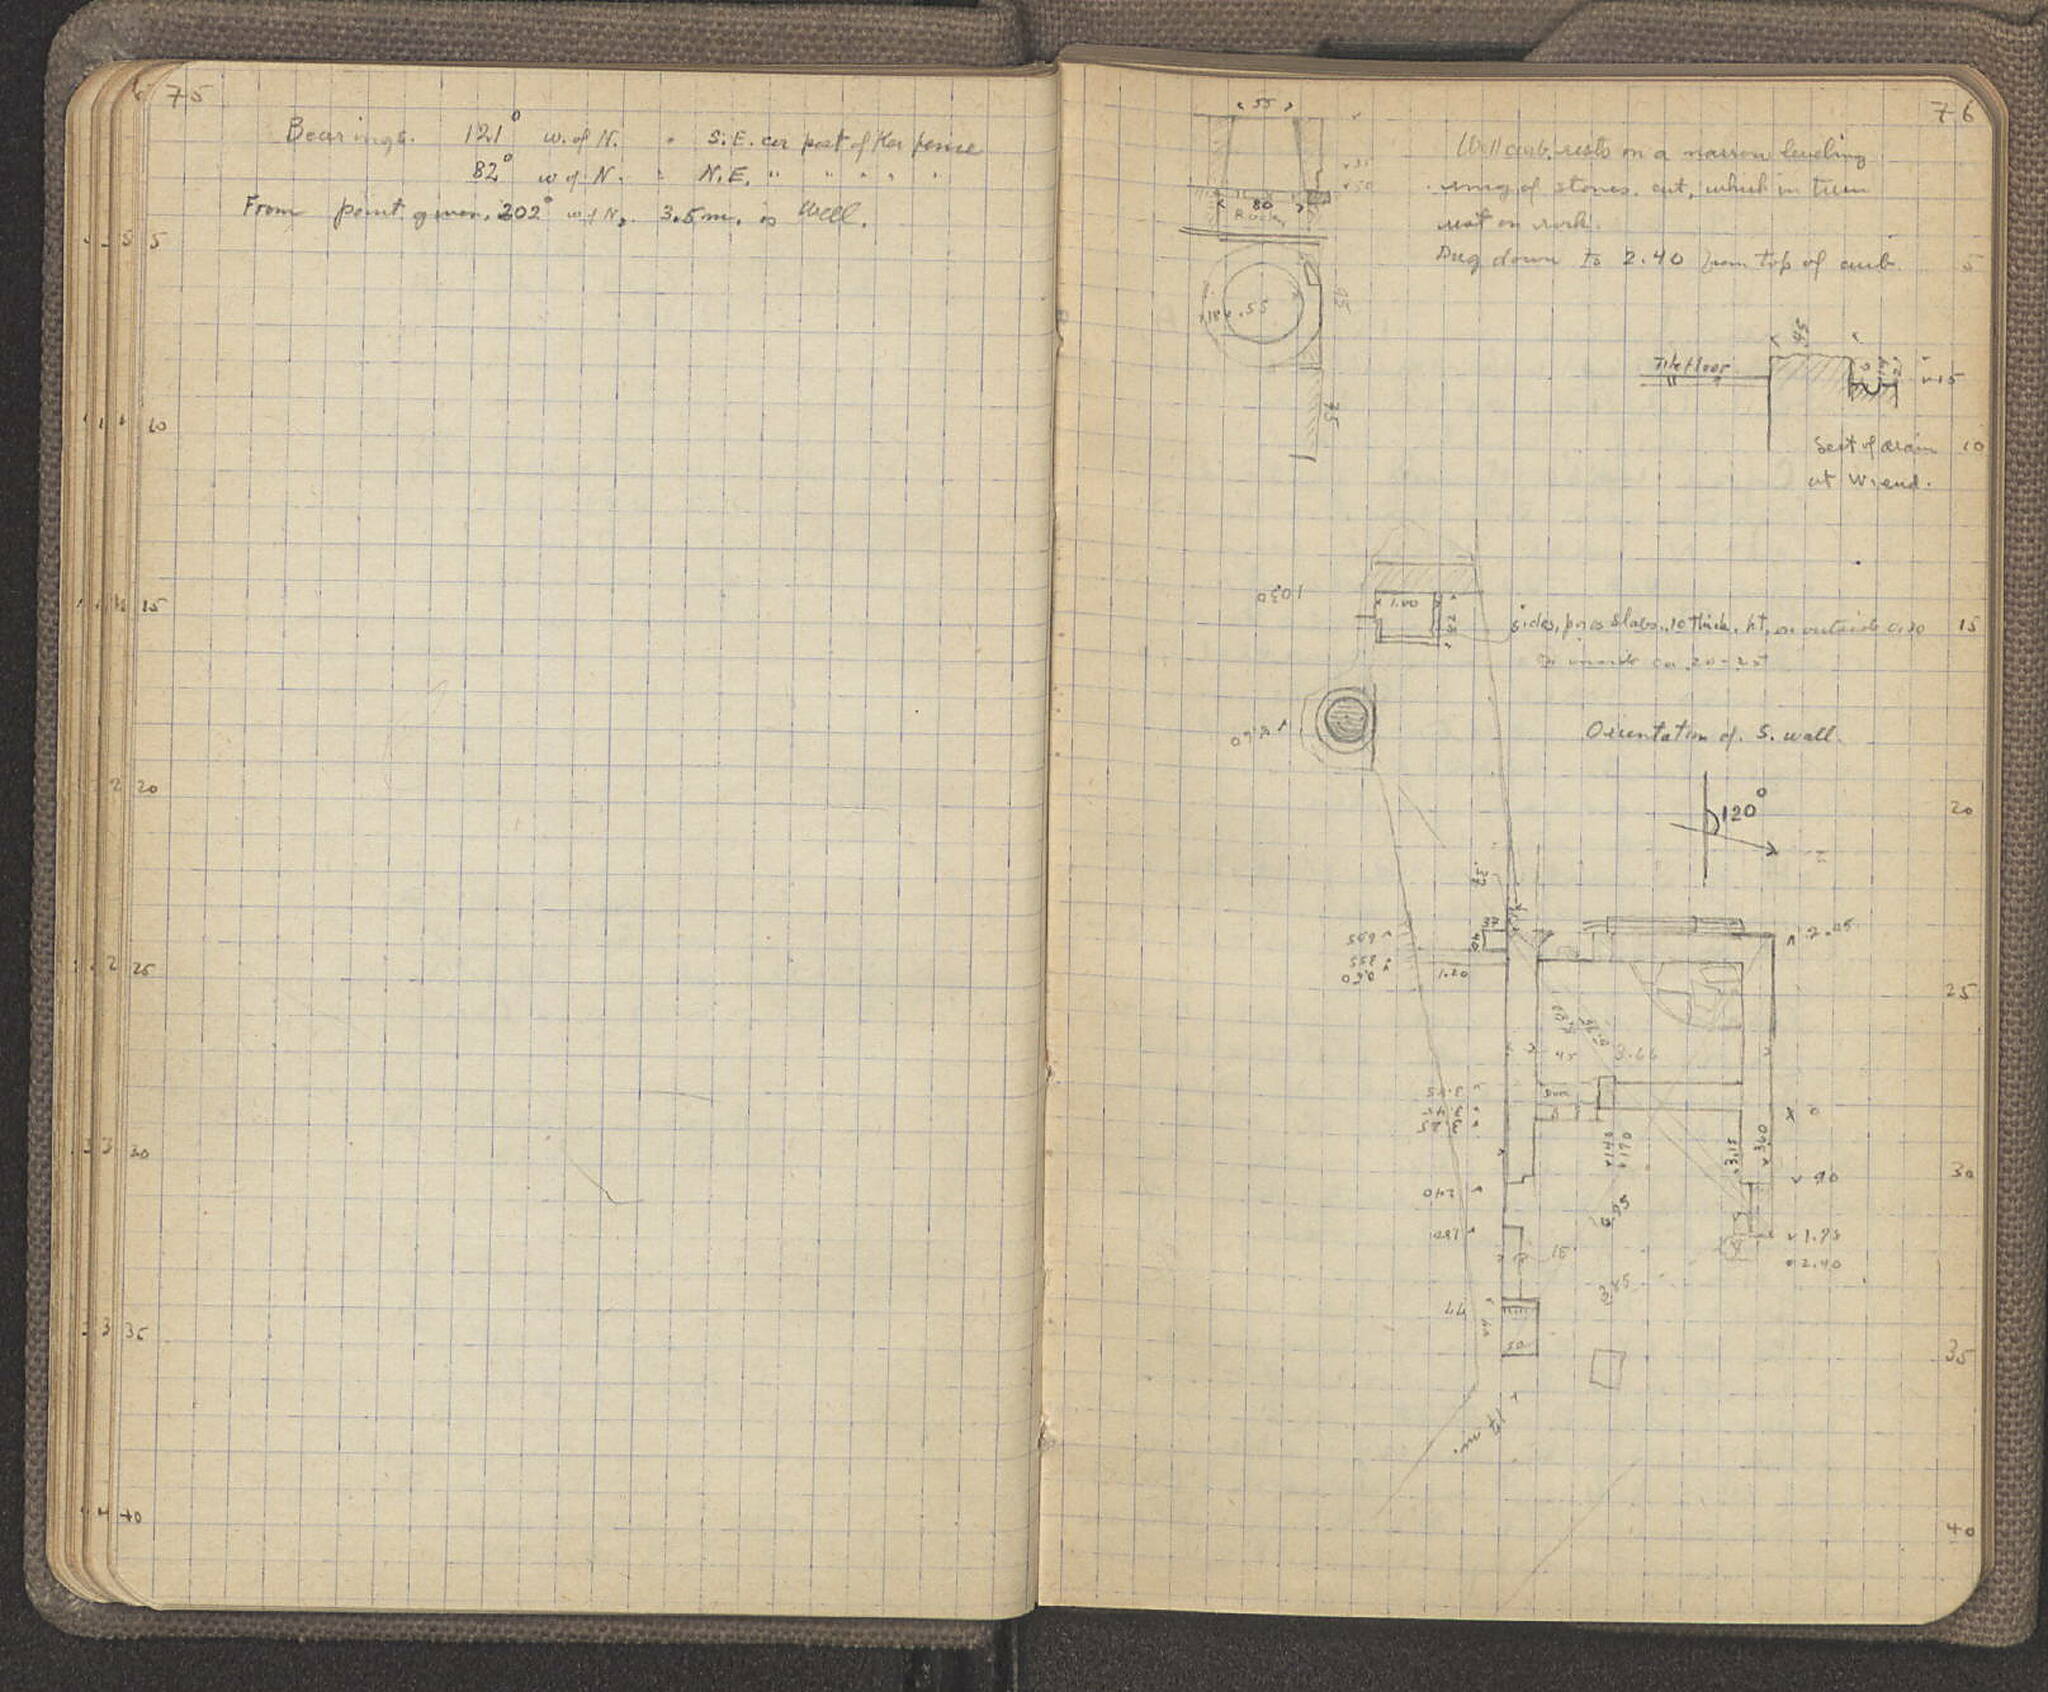 75
Bearings. 121° w. of N. S.E. cor post of fence
82° w of N. " N.E. " " " " "
From point given, 202° w of N, 3.5 m. is Well.
5
10
15
20
25
30
35
40
76
55
80
Rock
Well curb rests on a narrow leveling
ring of stones. cut, which in turn
rest on rock.
Dug down to 2.40 from top of curb.
5
.18
.55
95
75
Tile floor
45
15
Sect of drain
at W. end.
10
1030
1.00
75
sides, poros slabs .10 thick, ht, on outside 0.30
inside ca .20-.25
15
8.60
Orientation of S. wall.
120°
20
40
1.20
2.05
25
45
3.66
Door
0
1.48
1.70
3.15
3.60
90
30
240
180
6.95
15
1.75
2.40
3.85
77
50
35
to m.
40